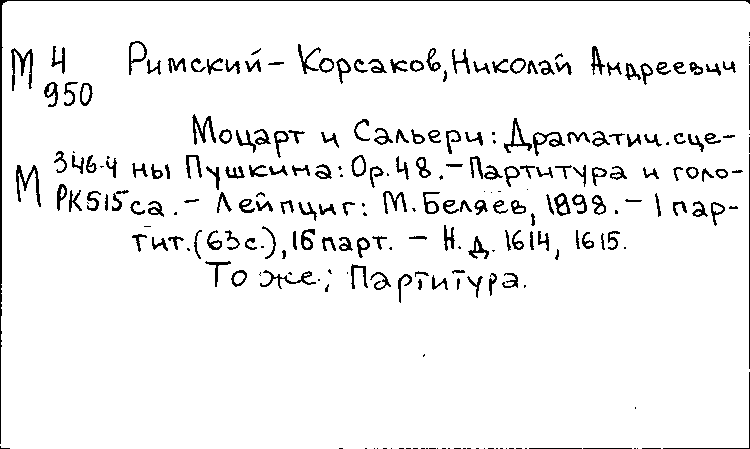 М 4
950
Римский-Корсаков, Николай Андреевич
Моцарт и Сальери: Драматич. сце-
М 346-4
РК515
ны Пушкина: Ор. 48. - Партитура и голо-
са. - Лейпциг: М. Беляев, 1898. - 1 пар-
тит. (63 с.), 16 парт. - Н. д. 1614, 1615.
То же; Партитура.